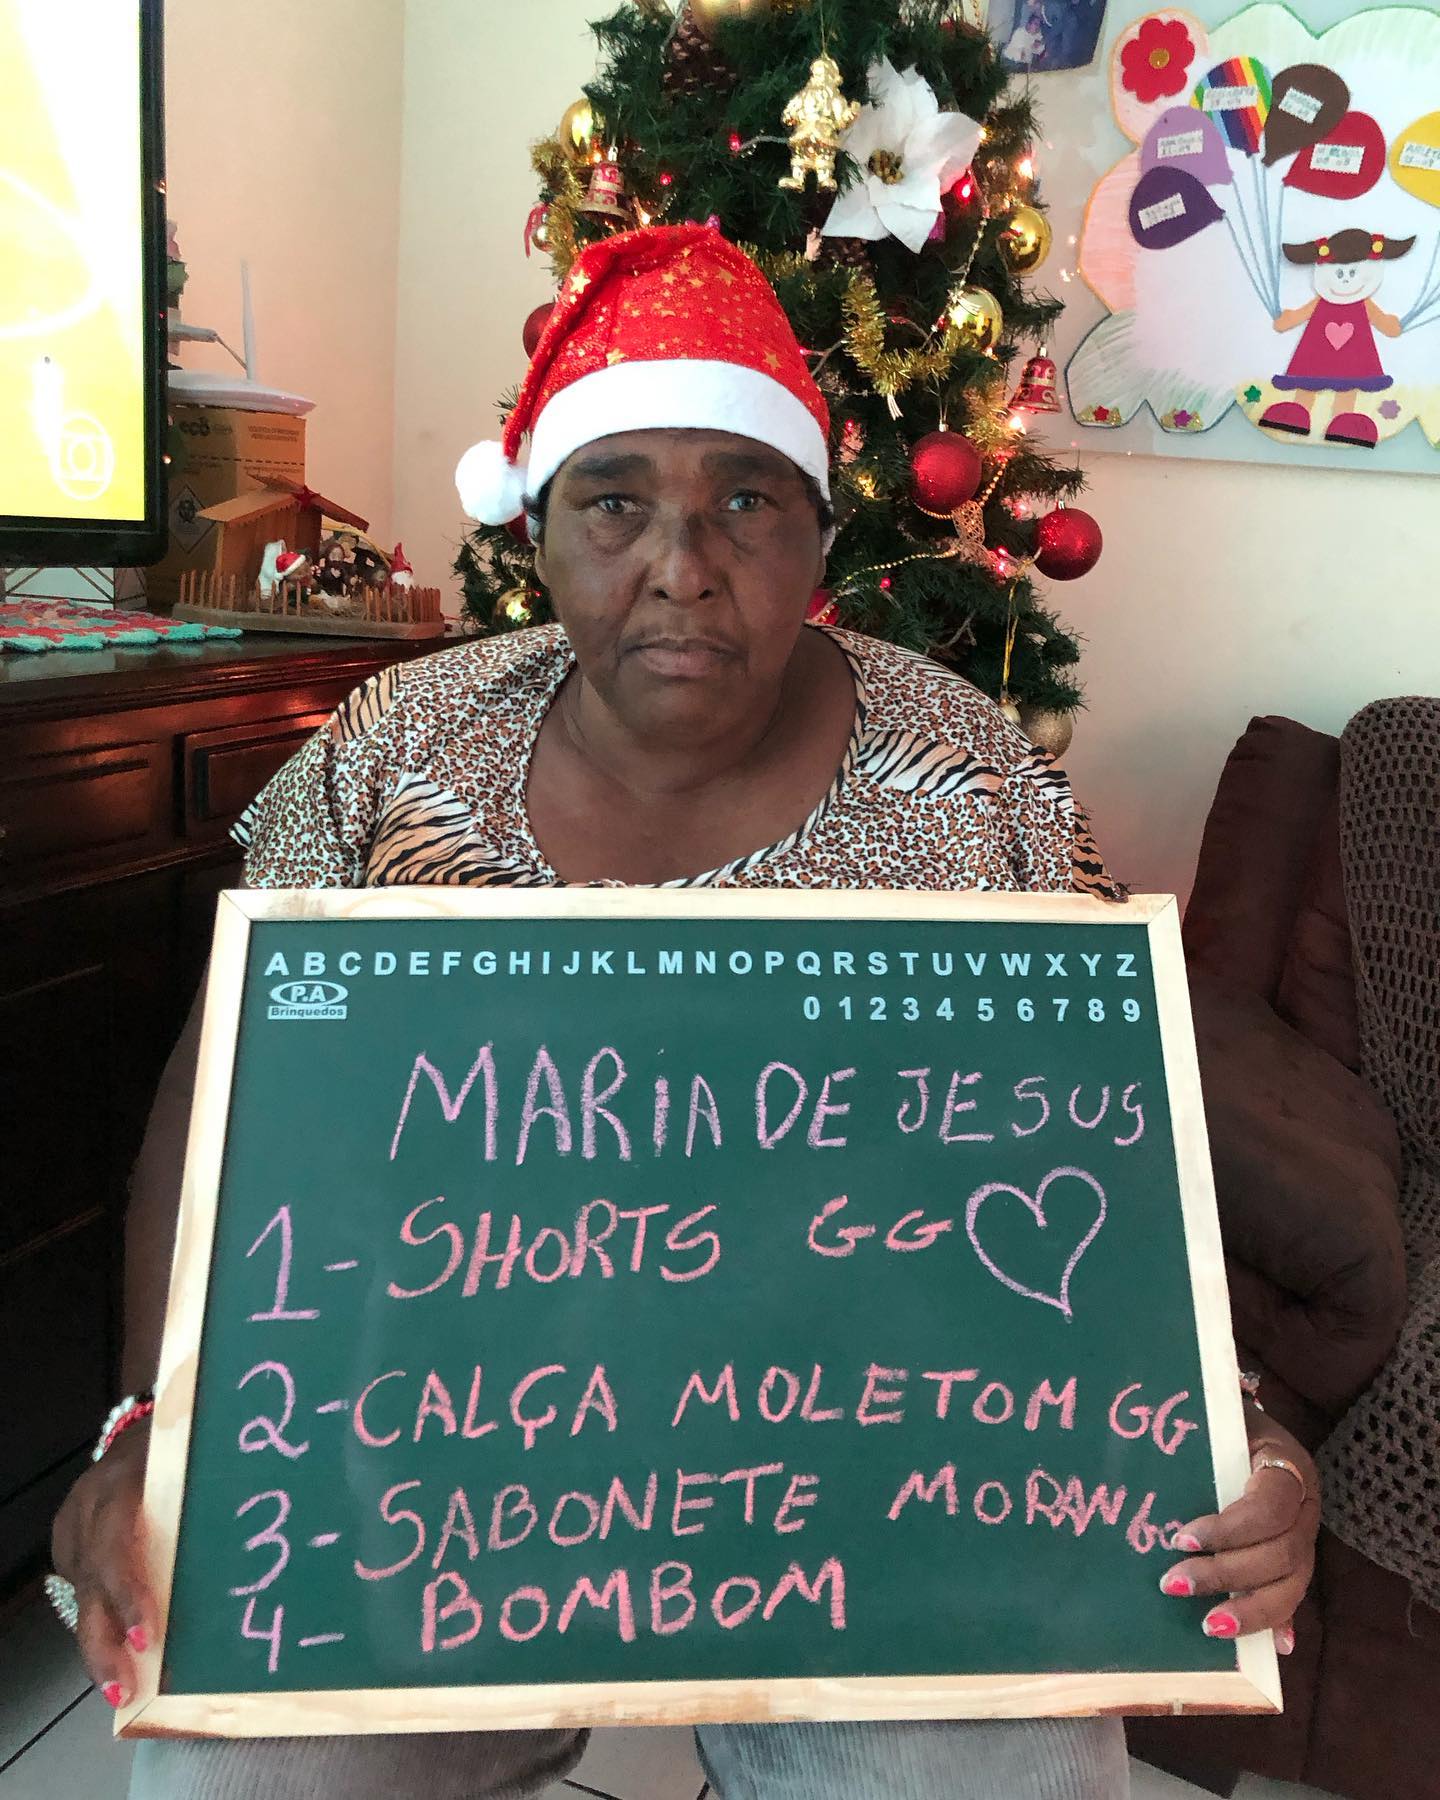 ABCDEFGHIJKLMNOPQRSTUVWXYZ
P.A
Brinquedos
0123456789
MARIA DE JESUS
1- SHORTS GG
2- CALÇA MOLETOM GG
3- SABONETE MORANGO
4- BOMBOM
eco